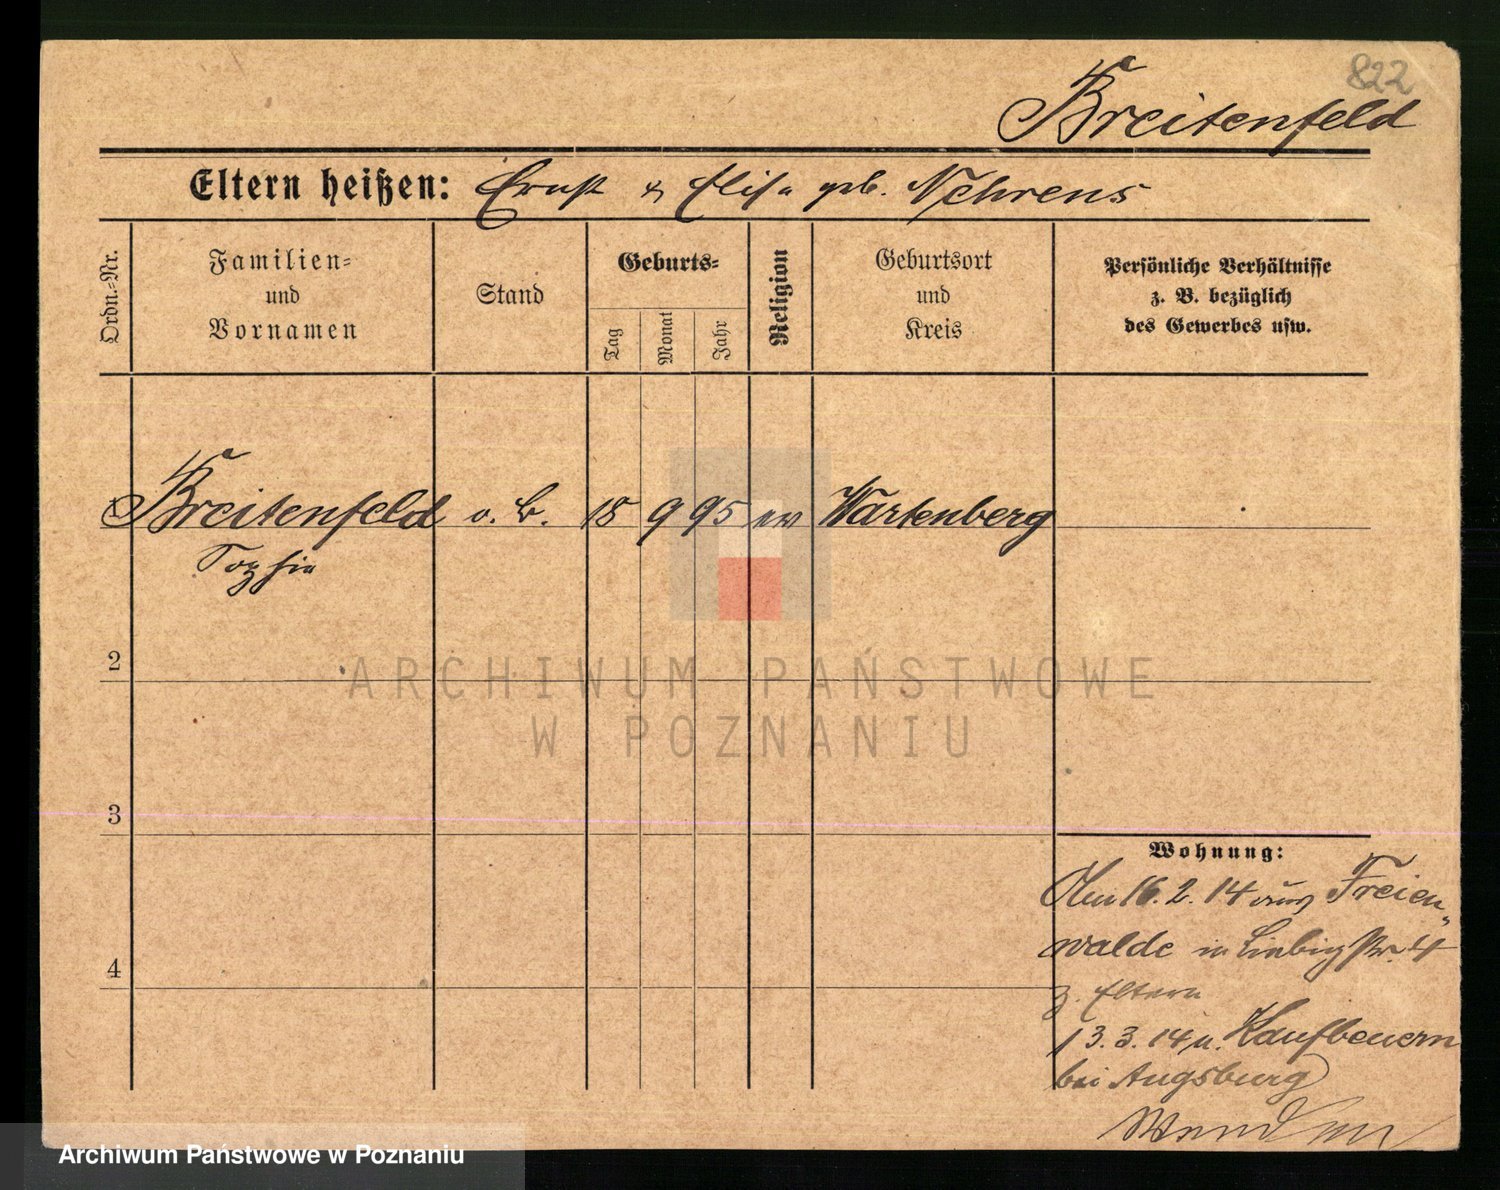 822
Breitenfeld
Eltern heißen: Ernst & Elise geb. Nehrens
Ordn.-Nr.
Familien-
und
Vornamen
Stand
Geburts-
Tag
Monat
Jahr
Religion
Geburtsort
und
Kreis
Persönliche Verhältnisse
z. B. bezüglich
des Gewerbes usw.
1 Breitenfeld o. B. 18 9 95 ev Wartenberg
Sophie
2
3
4
Wohnung:
Am 16.2.14 aus Freien-
walde in Liebigstr. 4
z. Eltern
13.3.14 n. Kaufbeuern
bei Augsburg
ARCHIWUM PAŃSTWOWE
W POZNANIU
Archiwum Państwowe w Poznaniu